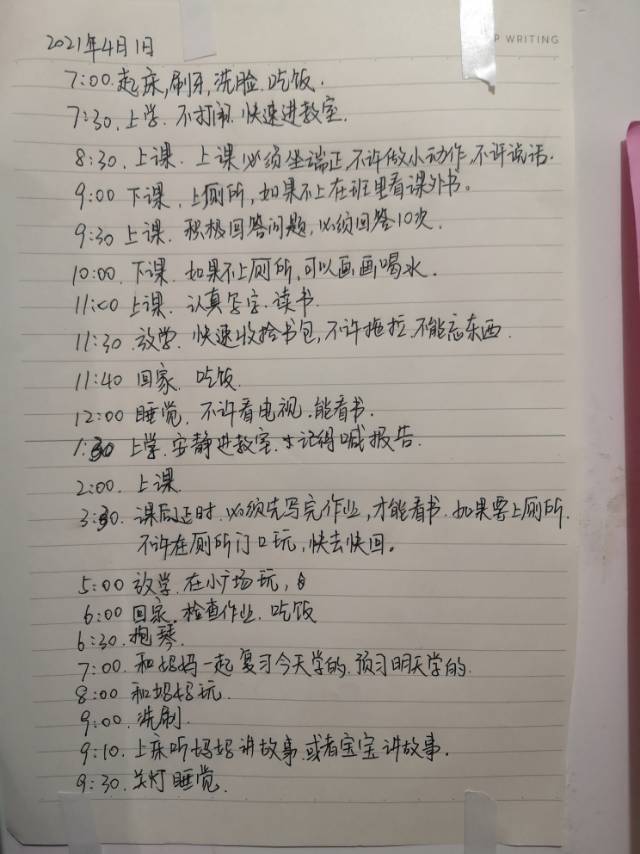 P WRITING
2021年4月1日
7:00.起床,刷牙,洗脸.吃饭.
7:30.上学.不打闹.快速进教室.
8:30.上课.上课必须坐端正,不许做小动作,不许说话.
9:00 下课.上厕所,如果不上在班里看课外书。
9:30 上课.积极回答问题,必须回答10次.
10:00.下课.如果不上厕所,可以画画喝水.
11:00 上课.认真写字.读书.
11:30.放学.快速收拾书包,不许拖拉.不能忘东西.
11:40 回家.吃饭.
12:00 睡觉.不许看电视.能看书.
1:30 上学.安静进教室.记得喊报告.
2:00.上课
3:30.课后延时.必须先写完作业,才能看书.如果要上厕所.
不许在厕所门口玩,快去快回。
5:00 放学.在小广场玩,
6:00 回家.检查作业.吃饭
6:30.抱琴.
7:00.和妈妈一起复习今天学的.预习明天学的.
8:00 和妈妈玩.
9:00.洗刷.
9:10.上床听妈妈讲故事.或者宝宝讲故事.
9:30.关灯睡觉.